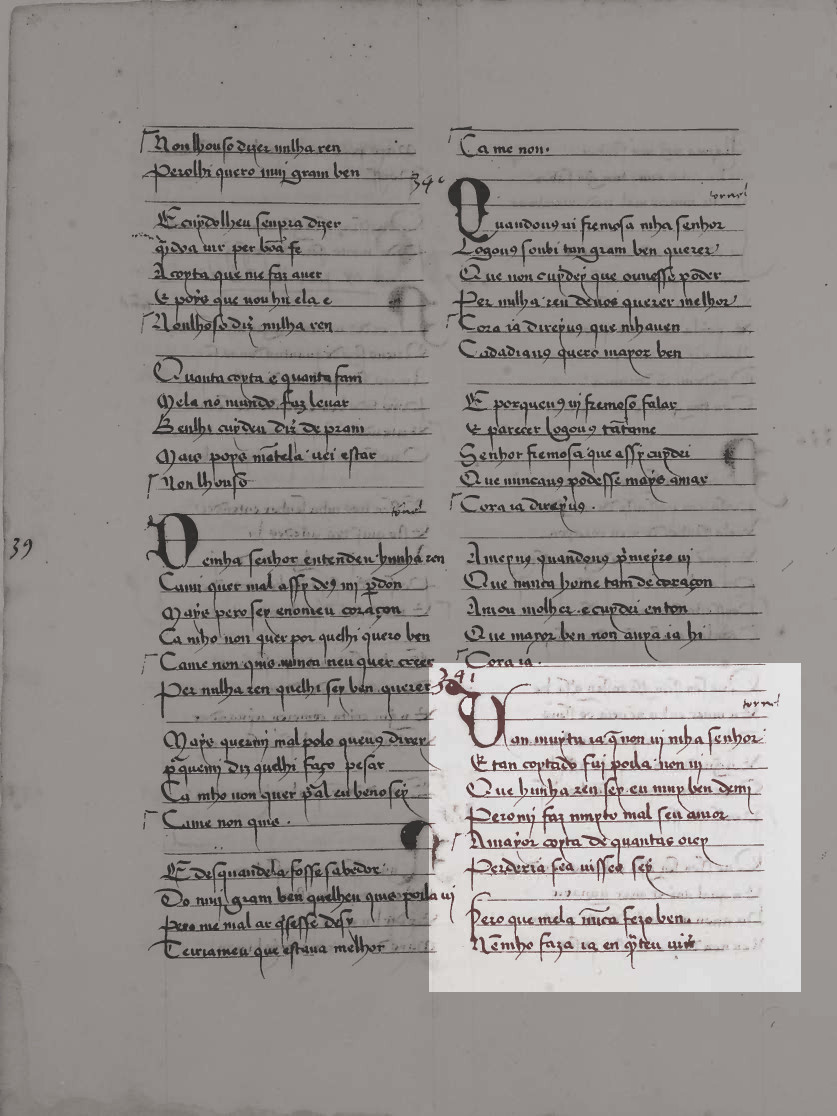 Non lhouso dizer nulha ren
Perolhi quero muj gram ben
E cuydolheu senpra dizer
q̄ idva uir per bōa fe
A coyta que me faz auer
E poys que uou hu ela e
Nonlhoso diz̄ nulha ren
Quanta coyta e quanta fam
Mela nō mundo faz leuar
Benlhi cuydeu diz̄ de pram
Mays poys mātela uei estar
Non lhouso
39
tornel
Deinha senhor entendeu hunha ren
Cami quer mal assy des mi p̄don
Mays pero sey enomeu coraçon
Ca mho non quer por quelhi quero ben
Came non quis nunca neu quer creer
Per nulha ren quelhi sey ben querer
Mays quermj mal polo queus direy
p̄ quemj diz quelhi faço pesar
Ca mho non quer p̄ al eu beno sey
Came non quis .
E desquandela fosse sabedor
Do muj gram ben quelheu quis poila uj
Pero me mal ar q̄sesse desy
Teiriameu que estaua melhor
Ca me non.
340
tornel
Quandous ui fremosa mha senhor
Logous soubi tan gram ben querer
Que non cuydey que ouuesse poder
Per nulha ren deuos querer melhor
E ora ia direyus que mhauen
Cadadiaus quero mayor ben
E porqueus uj fremoso falar
E parecer logous tātame
Senhor fremosa que assy cuydei
Que nuncaus podesse mays amar
E ora ia direyus .
A meyus quandous p̄meyro uj
Que nunca home tam de coraçon
Amou molher e cuydei enton
Que mayor ben non auya ia hi
E ora ia .
341
tornel
Uan muytu ia q̄ non uj mha senhor
E tan coytado fuj poila non uj
Que hunha ren sey eu muy ben demj
Peromj faz muyto mal seu amor
A mayor coyta de quantas oiey
Perderia sea uisse sey
Pero que mela nūca fezo ben
Nēmho faza ia en q̄nteu uiū